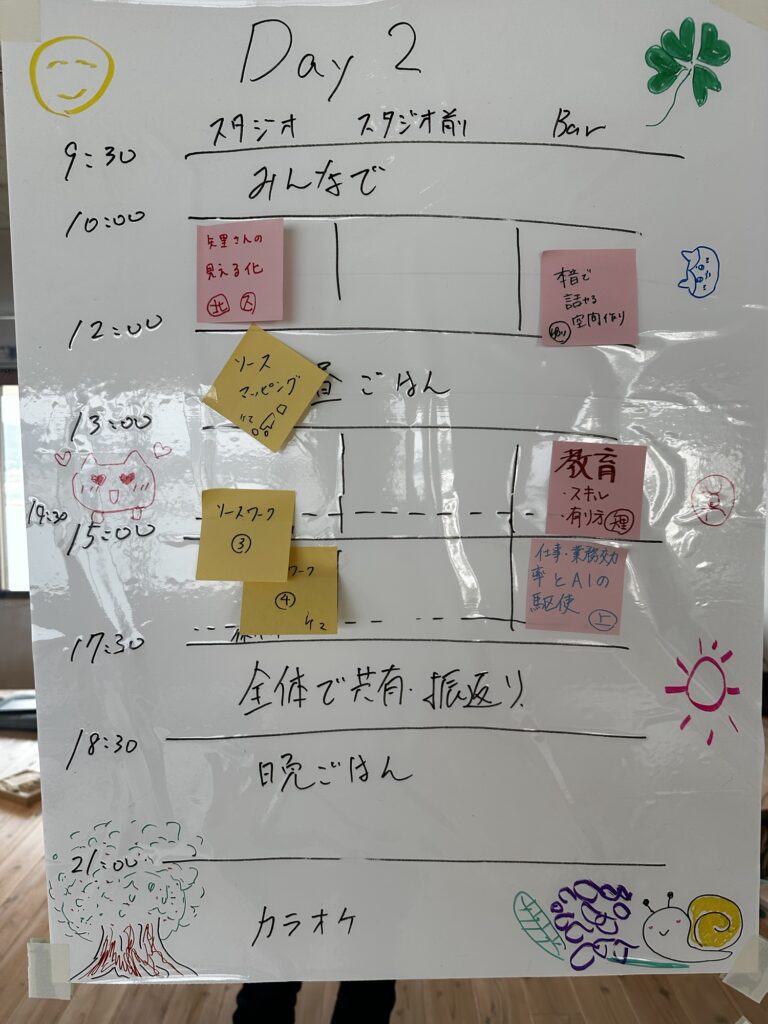 Day 2
スタジオ スタジオ前 Bar
9:30
みんなで
10:00
見える化
北 ス
本音で
話せる
空間作り
12:00
ソース
マッピング
ケマ
昼ごはん
13:00
教育
・スキル
・有り方 理
14:30
15:00
ソースワーク
③
ワーク
④
ケマ
仕事・業務効力
率とAIの
駆使 上
17:30
全体で共有・振返り
18:30
晩ごはん
21:00
カラオケ